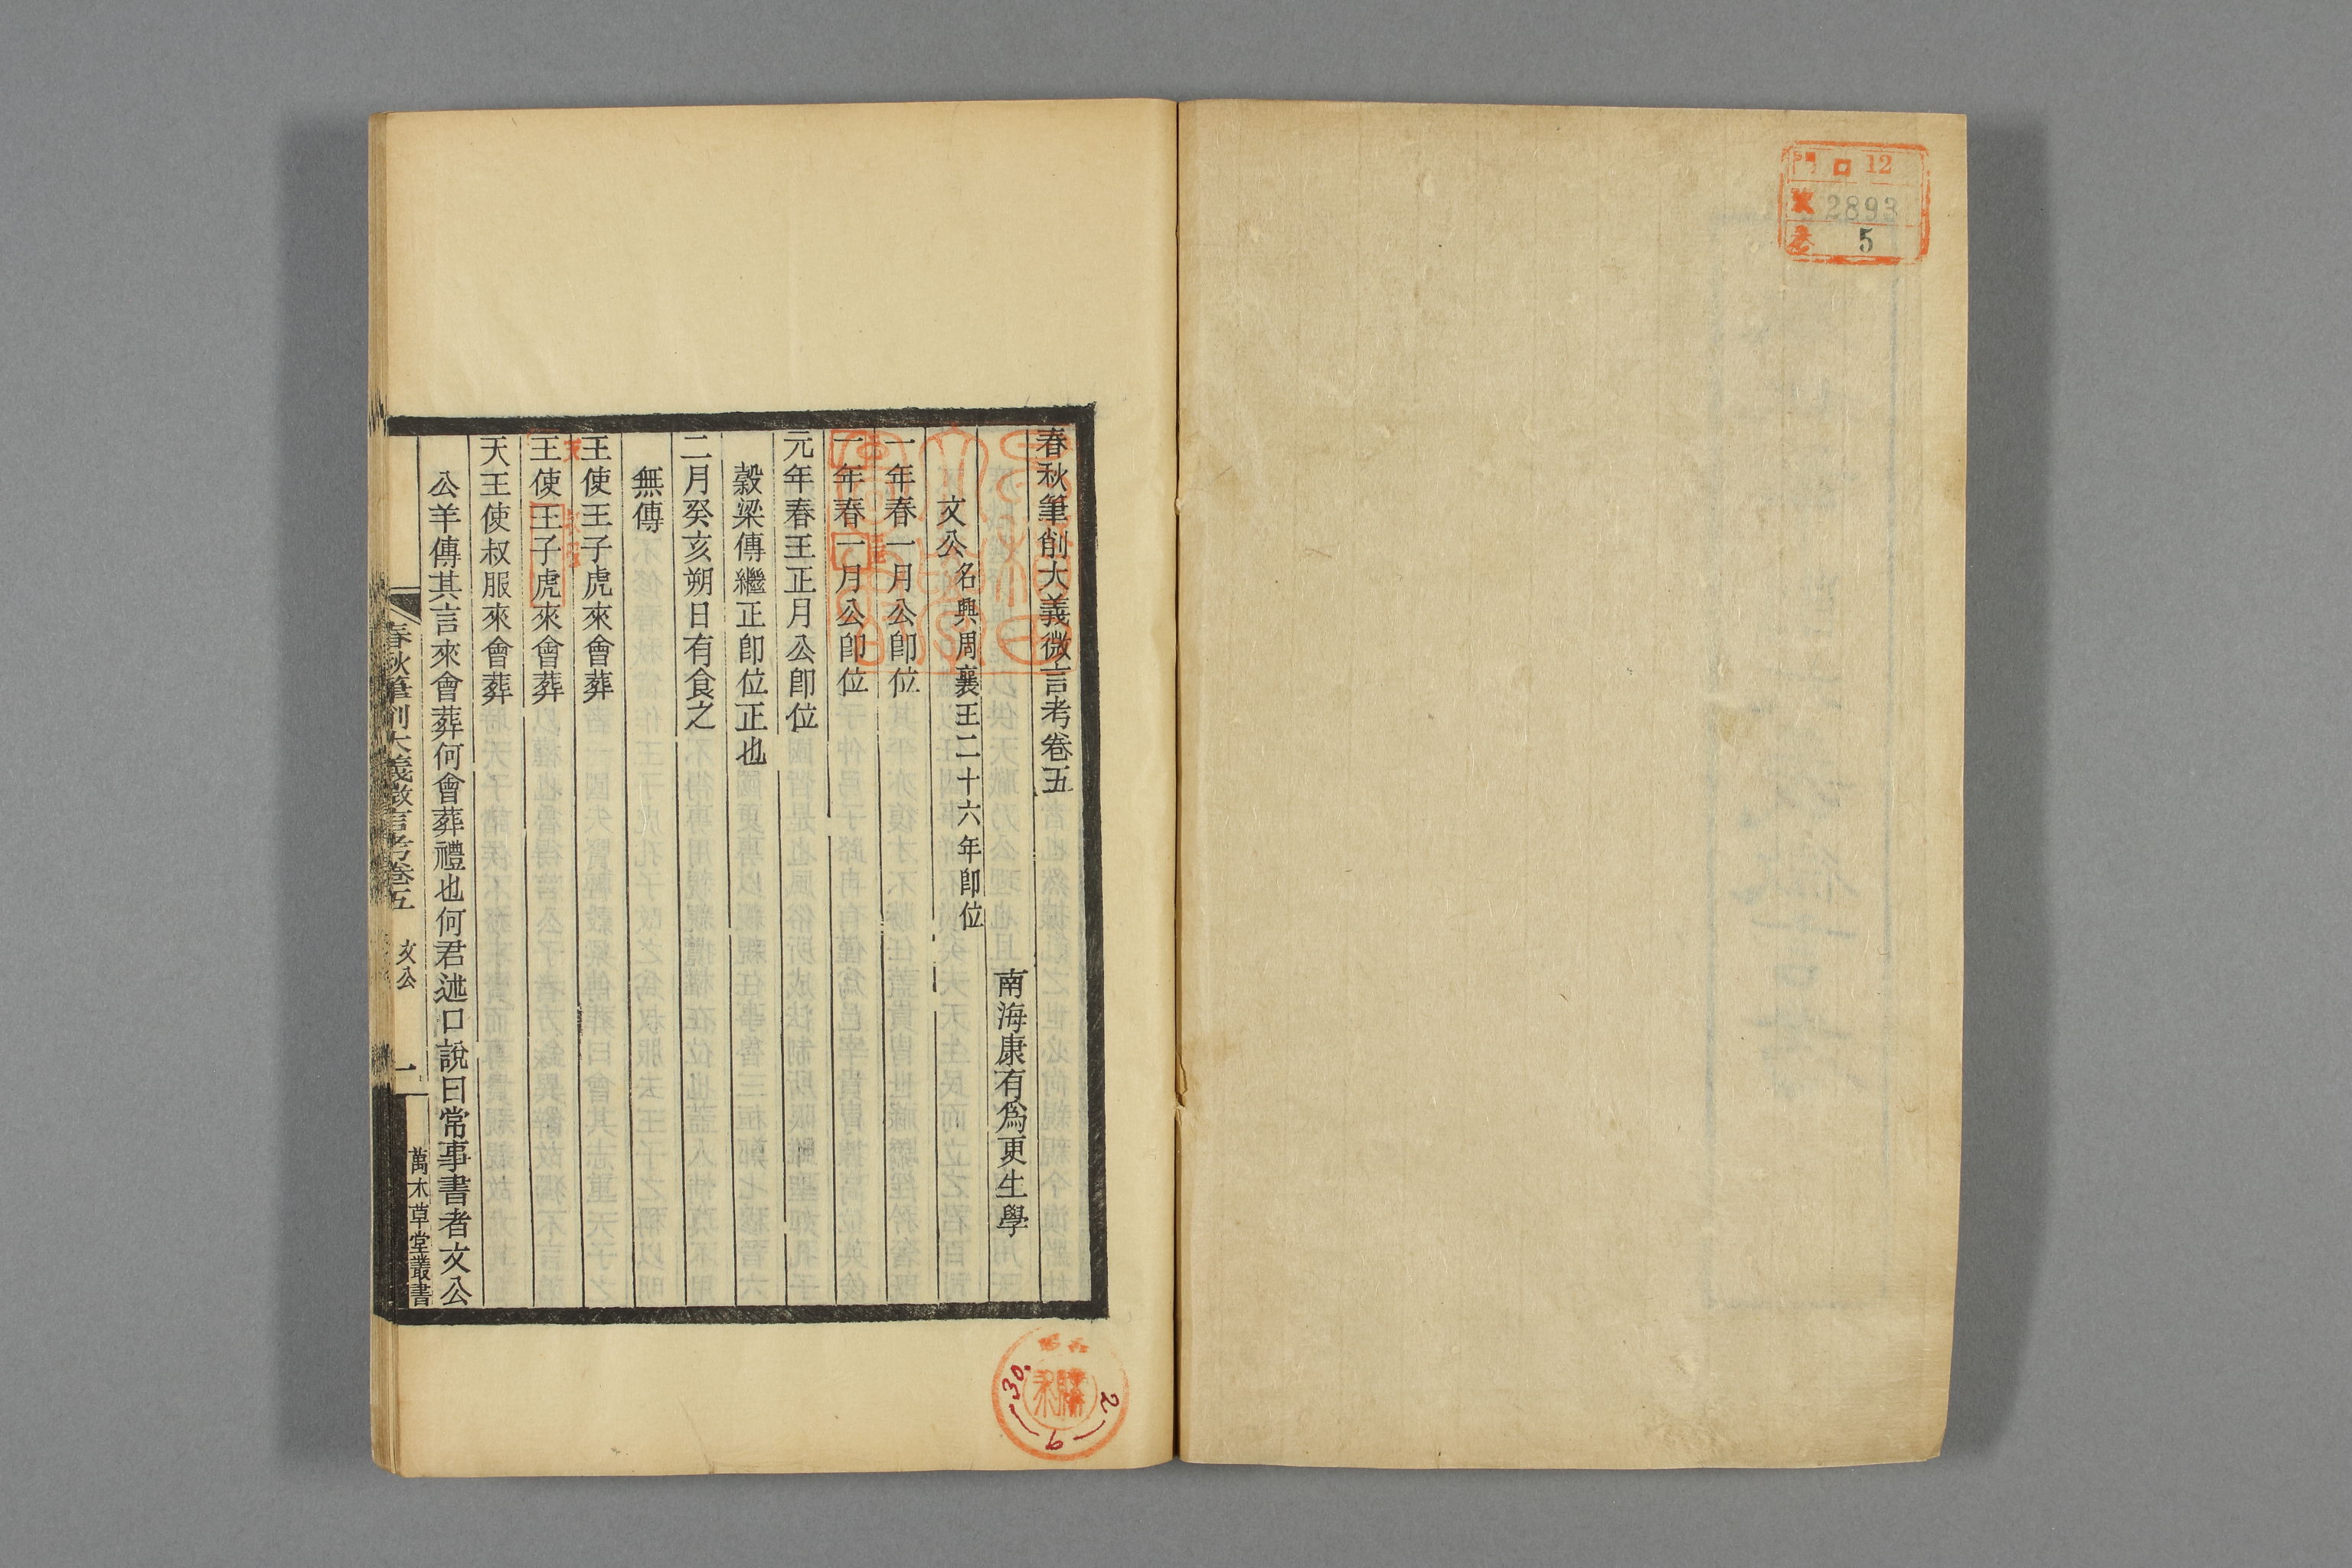 門 口 12
號 2893
卷 5
春秋筆削大義微言考卷五
南海康有爲更生學
文公名興周襄王二十六年卽位
一年春一月公卽位
一年春一月公卽位
元年春王正月公卽位
穀梁傳繼正卽位正也
二月癸亥朔日有食之
無傳
王使王子虎來會葬
王使王子虎來會葬
天王使叔服來會葬
公羊傳其言來會葬何會葬禮也何君述口說曰常事書者文公
春秋筆削大義微言考卷五 文公 一 萬木草堂叢書
30. 9 2